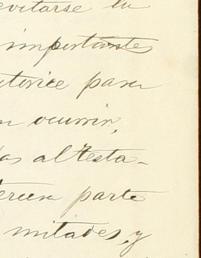 evitarse la
importantes
utorice para
n ocurrir,
as al testa-
ercera parte
mitades, y